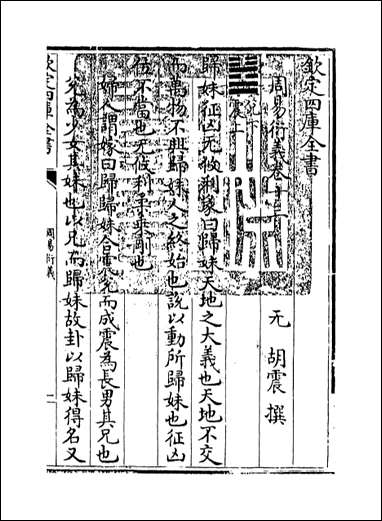 欽定四庫全書
周易衍義卷十三
元 胡震 撰
兌下
震上
歸妹征凶无攸利彖曰歸妹天地之大義也天地不交
而萬物不興歸妹人之終始也說以動所歸妹也征凶
位不當也无攸利柔乘剛也
婦人謂嫁曰歸歸妹合震兌而成震為長男其兄也
兌為少女其妹也以兄而歸妹故卦以歸妹得名又
欽定四庫全書
周易衍義